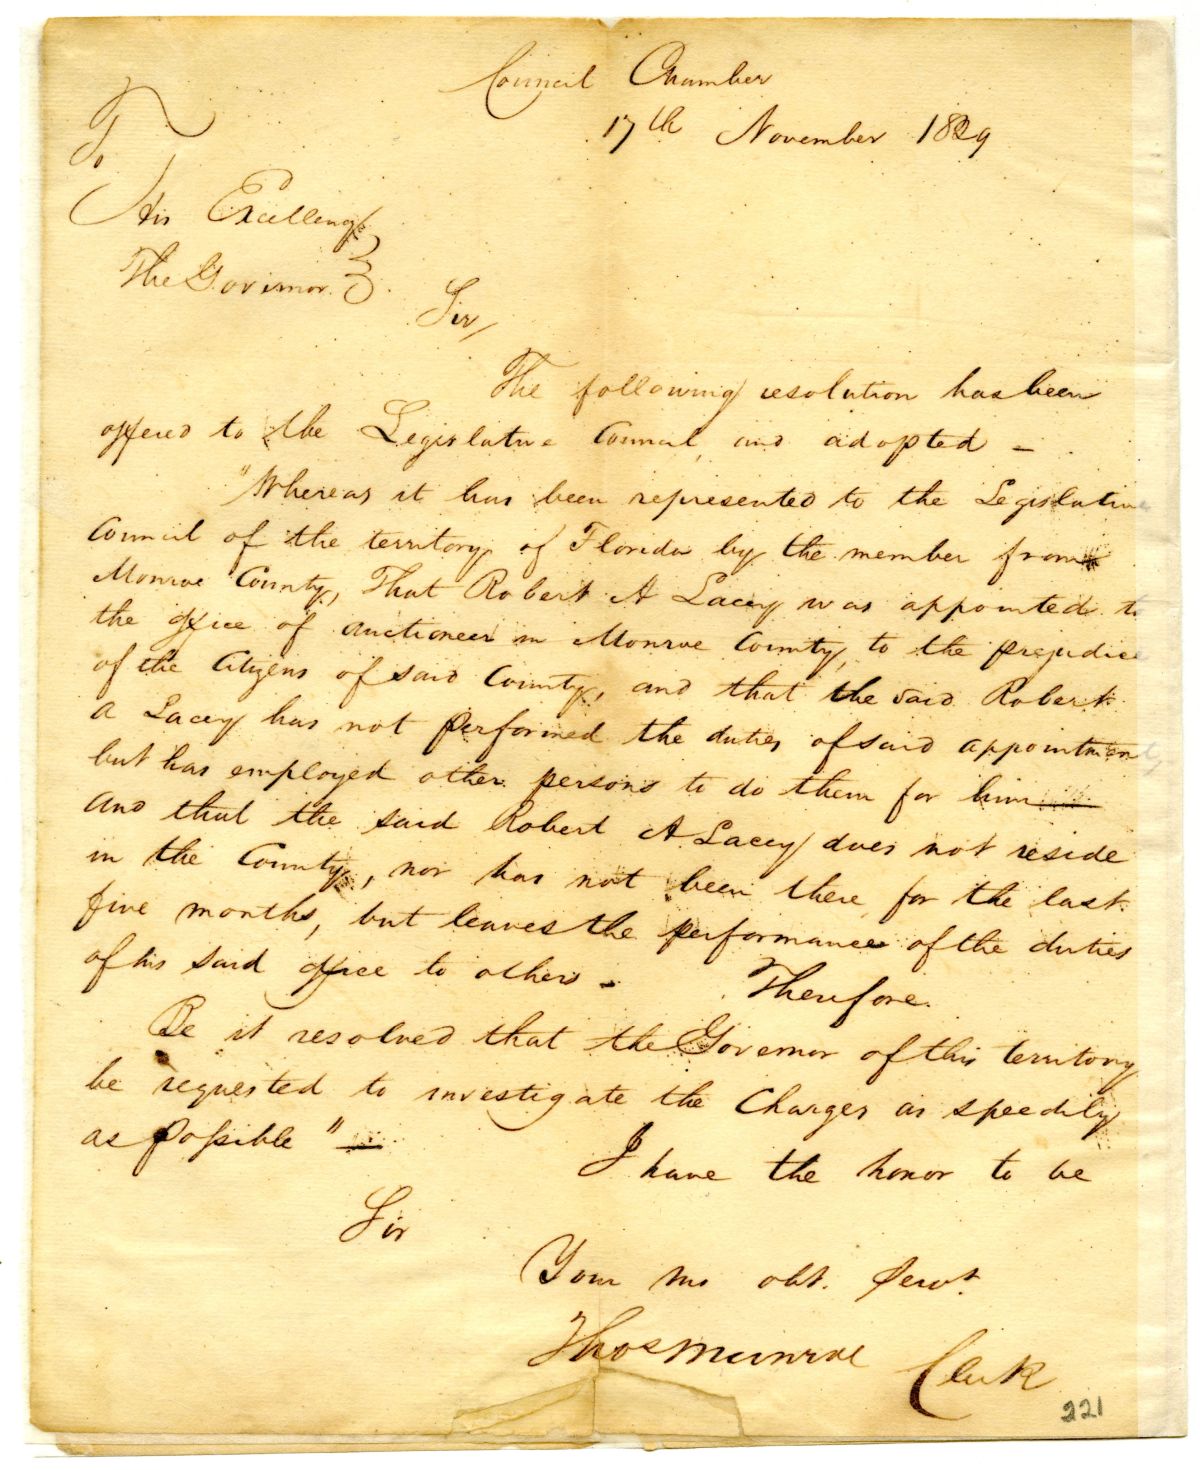 Council Chamber
17th November 1829
To
His Excellency
The Govornor.
Sir,
The following resolution has been
offered to the Legislative Council, and adopted –
"Whereas it has been represented to the Legislative
Council of the territory of Florida by the member from
Monroe County, That Robert A Lacey was appointed to
the office of auctioneer in Monroe County, to the prejudice
of the Citizens of said County, and that the said Robert
A Lacey has not performed the duties of said appointment,
but has employed other persons to do them for him
and that the said Robert A Lacey does not reside
in the County, nor has not been there for the last
five months, but leaves the performance of the duties
of his said office to others – Therefore.
Be it resolved that the Governor of this territory
be requested to investigate the Charges as speedily
as possible" —
I have the honor to be
Sir
Your mo obt. Servt.
Thos Munroe Clerk
221